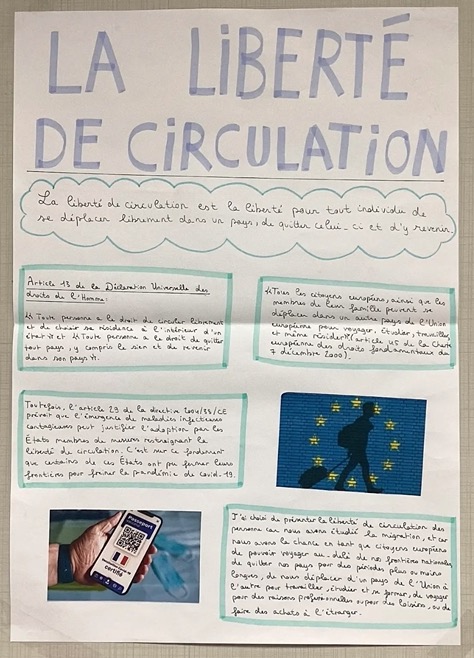 LA LIBERTÉ
DE CIRCULATION
La liberté de circulation est la liberté pour tout individu de
se déplacer librement dans un pays, de quitter celui-ci et d'y revenir.
Article 13 de la Déclaration Universelle des
droits de l'Homme:
"Toute personne a le droit de circuler librement
et de choisir sa résidence à l'intérieur d'un
état" et "Toute personne a le droit de quitter
tout pays, y compris le sien et de revenir
dans son pays".
"Tous les citoyens européens, ainsi que les
membres de leur famille peuvent se
déplacer dans un autre pays de l'Union
européenne pour voyager, étudier, travailler
et même résider" (article 45 de la Charte
européenne des droits fondamentaux du
7 décembre 2000).
Toutefois, l'article 29 de la directive 2004/38/CE
prévoit que l'émergence de maladies infectieuses
contagieuses peut justifier l'adoption par les
États membres de mesures restreignant la
liberté de circulation. C'est sur ce fondement
que certains de ces États ont pu fermer leurs
frontières pour freiner la pandémie de covid-19.
Passeport
certifié
J'ai choisi de présenter la liberté de circulation des
personne car nous avons étudié la migration, et car
nous avons la chance en tant que citoyens européens
de pouvoir voyager au-delà de nos frontières nationales,
de quitter nos pays pour des périodes plus ou moins
longues, de nous déplacer d'un pays de l'Union à
l'autre pour travailler, étudier et se former, de voyager
pour des raisons professionnelles ou pour des loisirs, ou de
faire des achats à l'étranger.